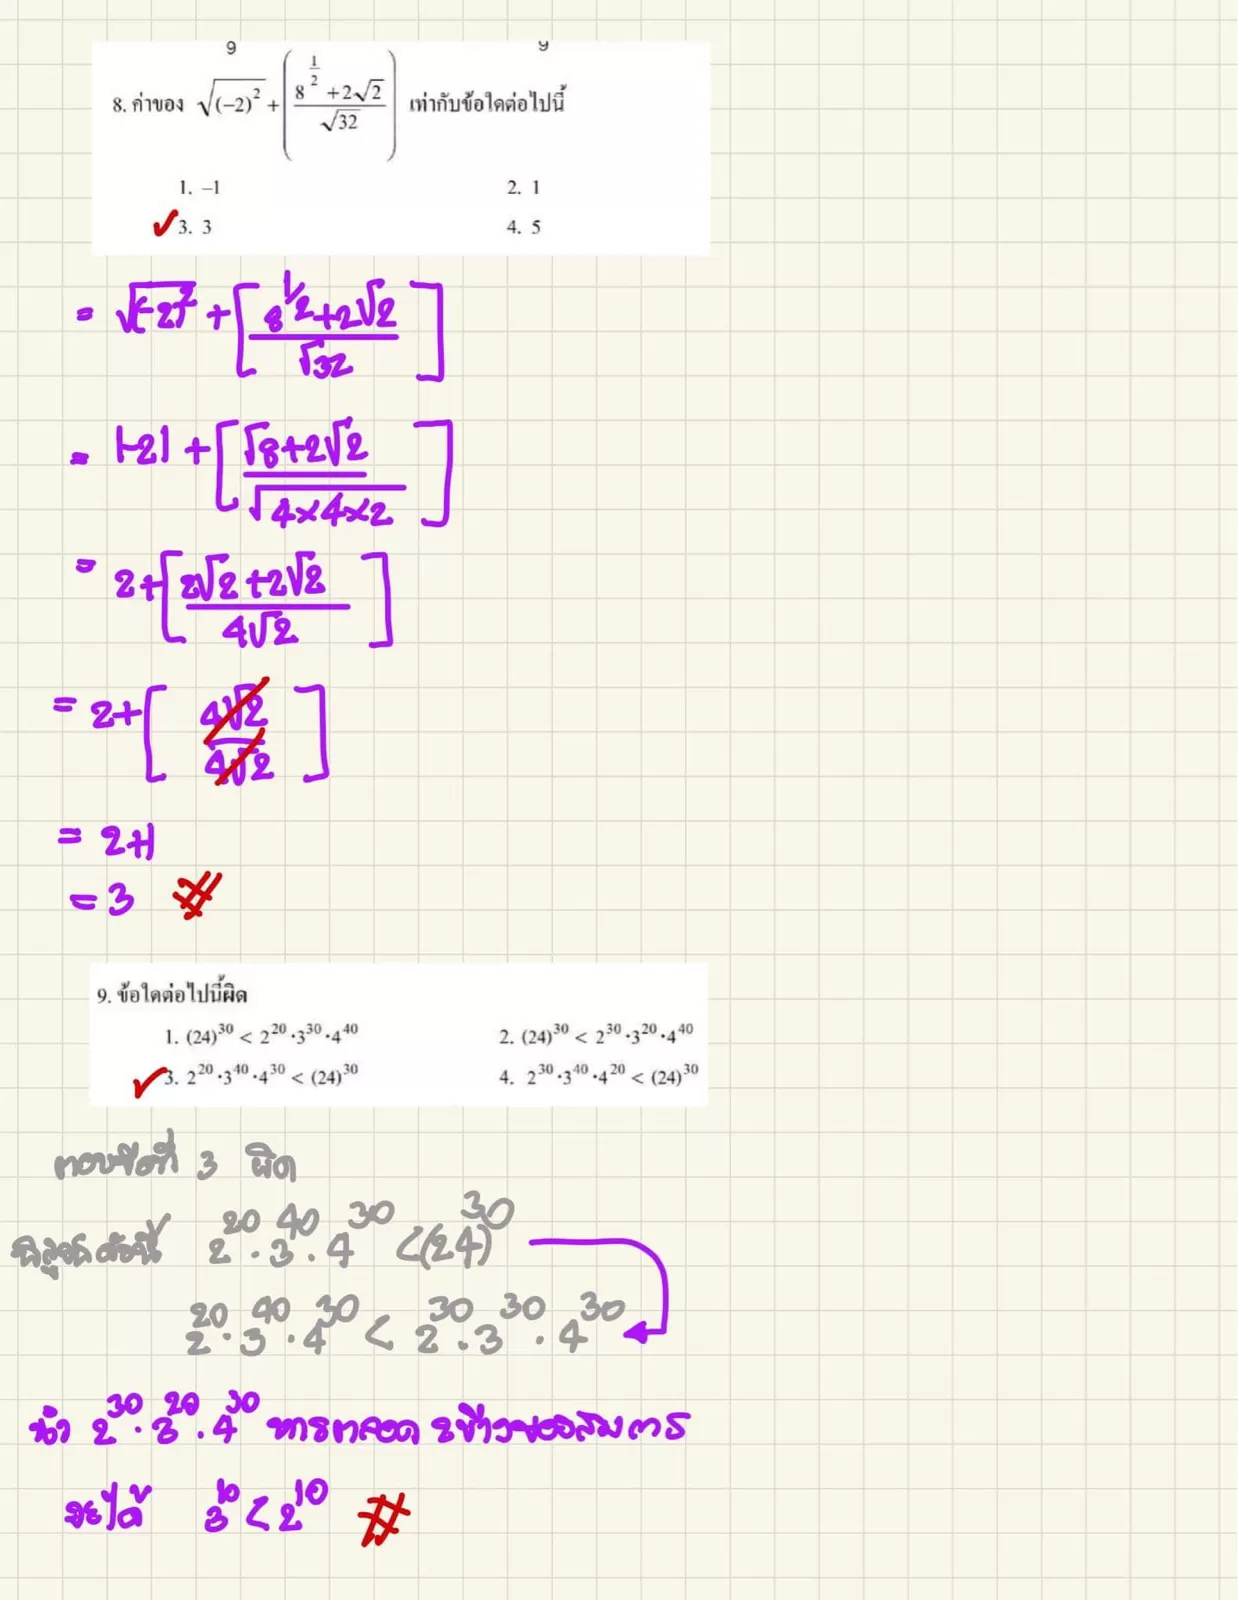 9 9
8. ค่าของ √(-2)² + ( (8^(1/2) + 2√2) / √32 ) เท่ากับข้อใดต่อไปนี้
1. –1 2. 1
✓3. 3 4. 5
= √(-2)² + [ (8^(1/2) + 2√2) / √32 ]
= |-2| + [ (√8 + 2√2) / √(4×4×2) ]
= 2 + [ (2√2 + 2√2) / 4√2 ]
= 2 + [ 4√2 / 4√2 ]
= 2+1
= 3 #
9. ข้อใดต่อไปนี้ผิด
1. (24)³⁰ < 2²⁰·3³⁰·4⁴⁰ 2. (24)³⁰ < 2³⁰·3²⁰·4⁴⁰
✓3. 2²⁰·3⁴⁰·4³⁰ < (24)³⁰ 4. 2³⁰·3⁴⁰·4²⁰ < (24)³⁰
ตอบข้อที่ 3 ผิด
พิสูจน์ดังนี้ 2²⁰·3⁴⁰·4³⁰ < (24)³⁰
2²⁰·3⁴⁰·4³⁰ < 2³⁰·3³⁰·4³⁰
นำ 2³⁰·3²⁰·4³⁰ หารตลอด 2ข้างของสมการ
จะได้ 3¹⁰ < 2¹⁰ #